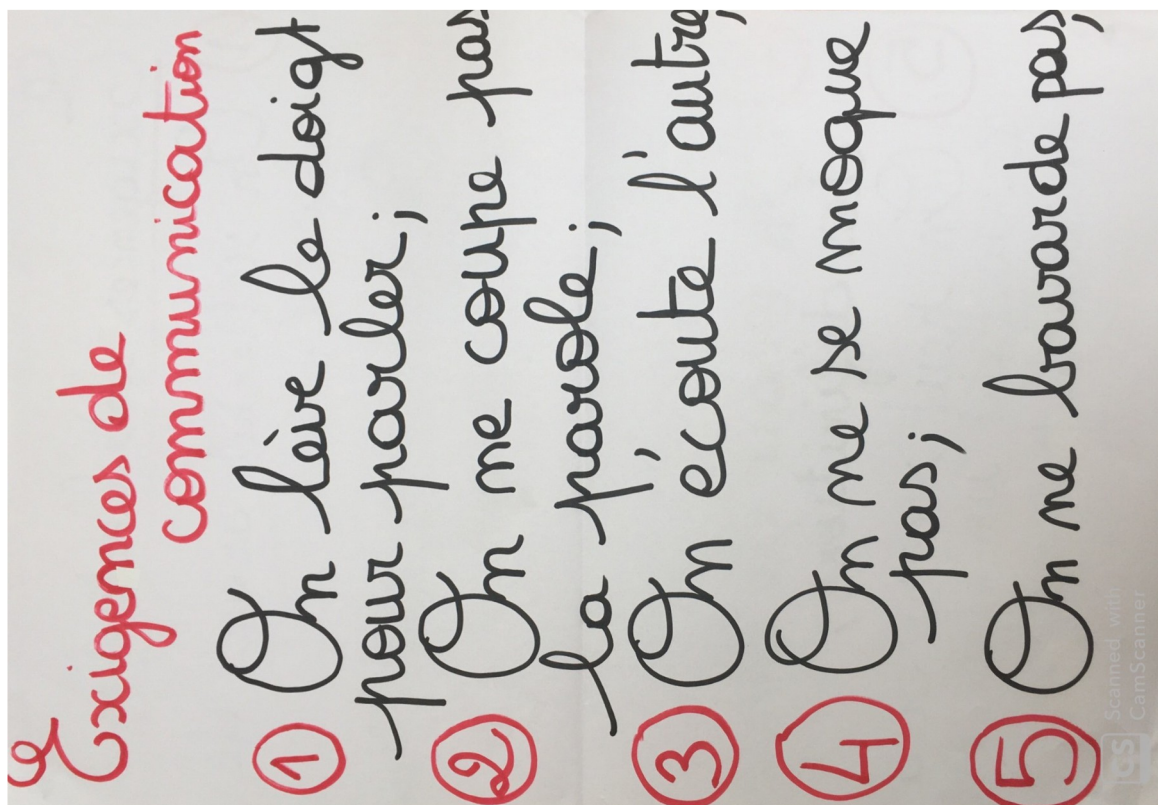 Exigences de
communication
1 On lève le doigt
pour parler;
2 On ne coupe pas
la parole;
3 On écoute l'autre,
4 On ne se moque
pas;
5 On ne bavarde pas,
CS Scanned with
CamScanner